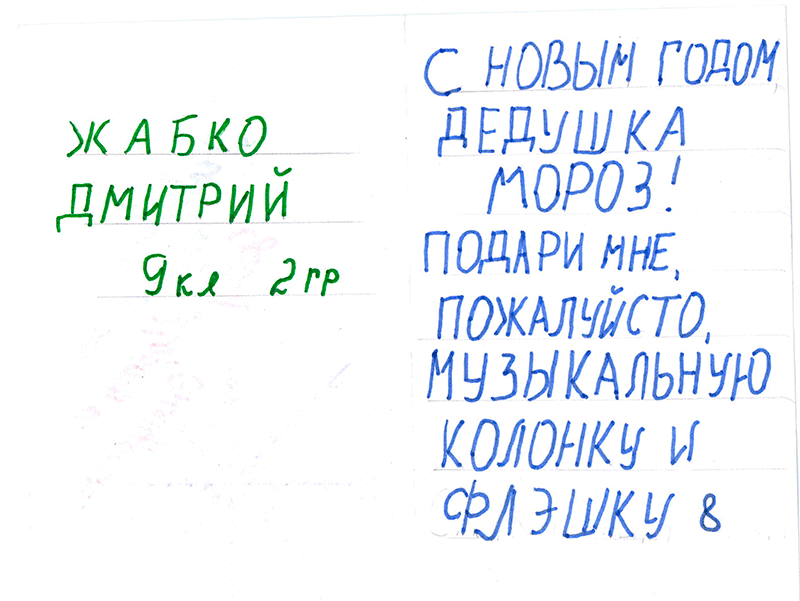 ЖАБКО
ДМИТРИЙ
9 кл 2 гр
С НОВЫМ ГОДОМ
ДЕДУШКА
МОРОЗ!
ПОДАРИ МНЕ,
ПОЖАЛУЙСТО,
МУЗЫКАЛЬНУЮ
КОЛОНКУ И
ФЛЭШКУ 8